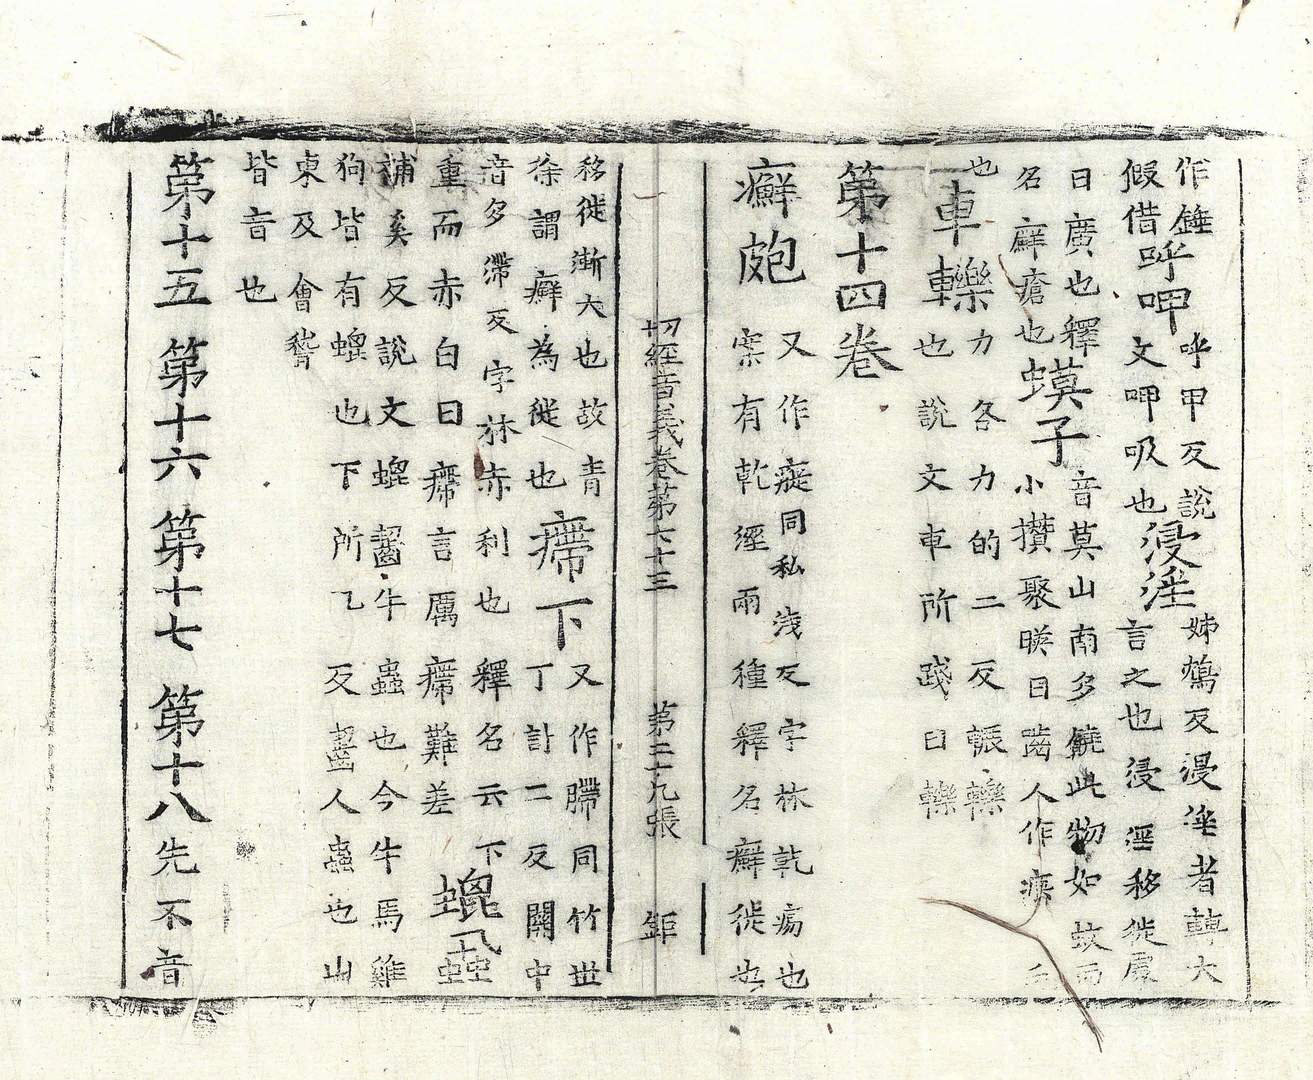 作錘
假借
呼呷
呼甲反說
文呷吸也
浸淫
姊鴆反浸淫者轉大
言之也浸淫移徙處
日廣也釋
名癬瘡也
蟆子
音莫山南多饒此物如蚊而
小攢聚映日齧人作痕
也
車轢
力各力的二反輾轢
也說文車所踐曰轢
第十四卷
癬皰
又作㾌同私淺反字林乾瘍也
案有乾經兩種釋名癬徙也
切經音義卷第六十三 第二十九張 鉅
移徙漸大也故青
徐謂癬為徙也
㿃下
又作䐭同竹世
丁計二反關中
音多滯反字林赤利也釋名云下
重而赤白曰㿃言厲㿃難差
螕蝨
補奚反說文螕齧牛蟲也今牛馬雞
狗皆有螕也下所乙反齧人蟲也山
東及會稽
皆音也
第十五 第十六 第十七 第十八 先不音